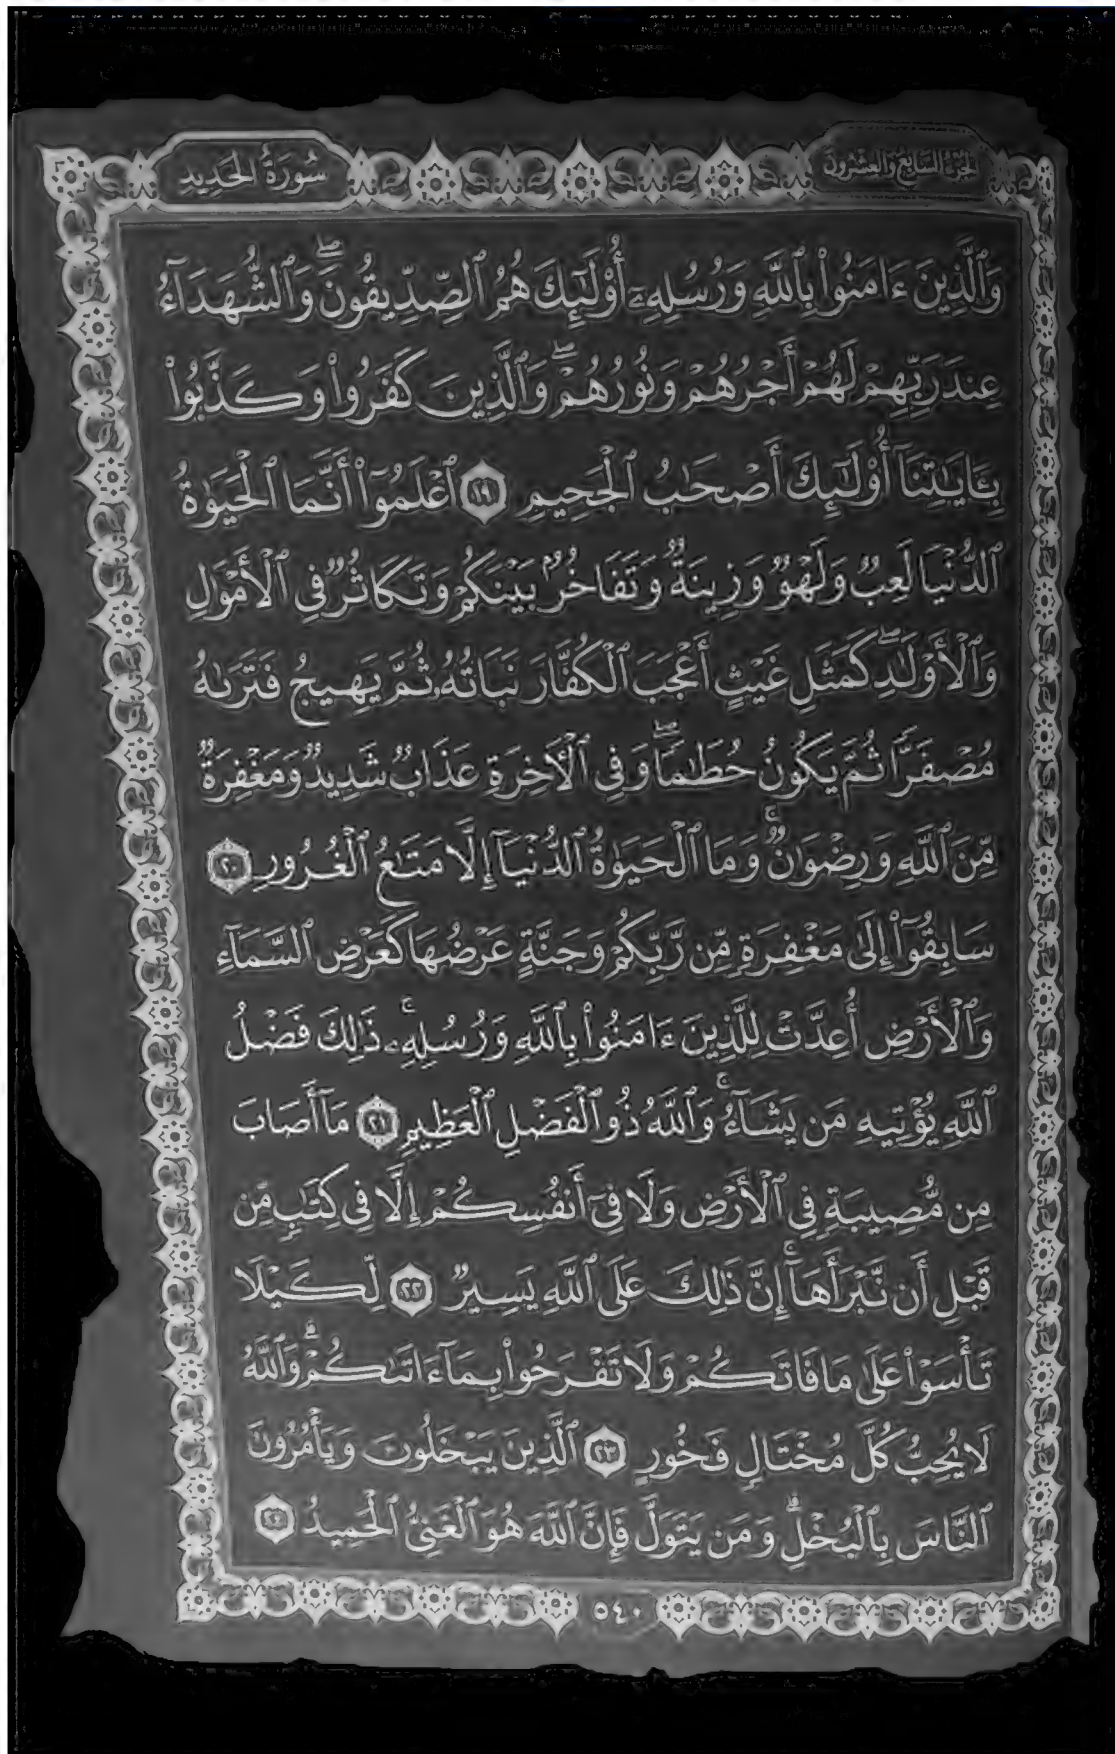 الجزء السابع والعشرون
سُورَةُ الحَدِيدِ
وَٱلَّذِينَ ءَامَنُواْ بِٱللَّهِ وَرُسُلِهِۦٓ أُوْلَٰٓئِكَ هُمُ ٱلصِّدِّيقُونَۖ وَٱلشُّهَدَآءُ
عِندَ رَبِّهِمْ لَهُمْ أَجْرُهُمْ وَنُورُهُمْۖ وَٱلَّذِينَ كَفَرُواْ وَكَذَّبُواْ
بِـَٔايَٰتِنَآ أُوْلَٰٓئِكَ أَصْحَٰبُ ٱلْجَحِيمِ ١٩ ٱعْلَمُوٓاْ أَنَّمَا ٱلْحَيَوٰةُ
ٱلدُّنْيَا لَعِبٌ وَلَهْوٌ وَزِينَةٌ وَتَفَاخُرٌۢ بَيْنَكُمْ وَتَكَاثُرٌ فِى ٱلْأَمْوَٰلِ
وَٱلْأَوْلَٰدِۖ كَمَثَلِ غَيْثٍ أَعْجَبَ ٱلْكُفَّارَ نَبَاتُهُۥ ثُمَّ يَهِيجُ فَتَرَىٰهُ
مُصْفَرًّا ثُمَّ يَكُونُ حُطَٰمًاۖ وَفِى ٱلْأَخِرَةِ عَذَابٌ شَدِيدٌ وَمَغْفِرَةٌ
مِّنَ ٱللَّهِ وَرِضْوَٰنٌۚ وَمَا ٱلْحَيَوٰةُ ٱلدُّنْيَآ إِلَّا مَتَٰعُ ٱلْغُرُورِ ٢٠
سَابِقُوٓاْ إِلَىٰ مَغْفِرَةٍ مِّن رَّبِّكُمْ وَجَنَّةٍ عَرْضُهَا كَعَرْضِ ٱلسَّمَآءِ
وَٱلْأَرْضِ أُعِدَّتْ لِلَّذِينَ ءَامَنُواْ بِٱللَّهِ وَرُسُلِهِۦۚ ذَٰلِكَ فَضْلُ
ٱللَّهِ يُؤْتِيهِ مَن يَشَآءُۚ وَٱللَّهُ ذُو ٱلْفَضْلِ ٱلْعَظِيمِ ٢١ مَآ أَصَابَ
مِن مُّصِيبَةٍ فِى ٱلْأَرْضِ وَلَا فِىٓ أَنفُسِكُمْ إِلَّا فِى كِتَٰبٍ مِّن
قَبْلِ أَن نَّبْرَأَهَآۚ إِنَّ ذَٰلِكَ عَلَى ٱللَّهِ يَسِيرٌ ٢٢ لِّكَيْلَا
تَأْسَوْاْ عَلَىٰ مَا فَاتَكُمْ وَلَا تَفْرَحُواْ بِمَآ ءَاتَىٰكُمْۗ وَٱللَّهُ
لَا يُحِبُّ كُلَّ مُخْتَالٍ فَخُورٍ ٢٣ ٱلَّذِينَ يَبْخَلُونَ وَيَأْمُرُونَ
ٱلنَّاسَ بِٱلْبُخْلِۗ وَمَن يَتَوَلَّ فَإِنَّ ٱللَّهَ هُوَ ٱلْغَنِىُّ ٱلْحَمِيدُ ٢٤
٥٤٠